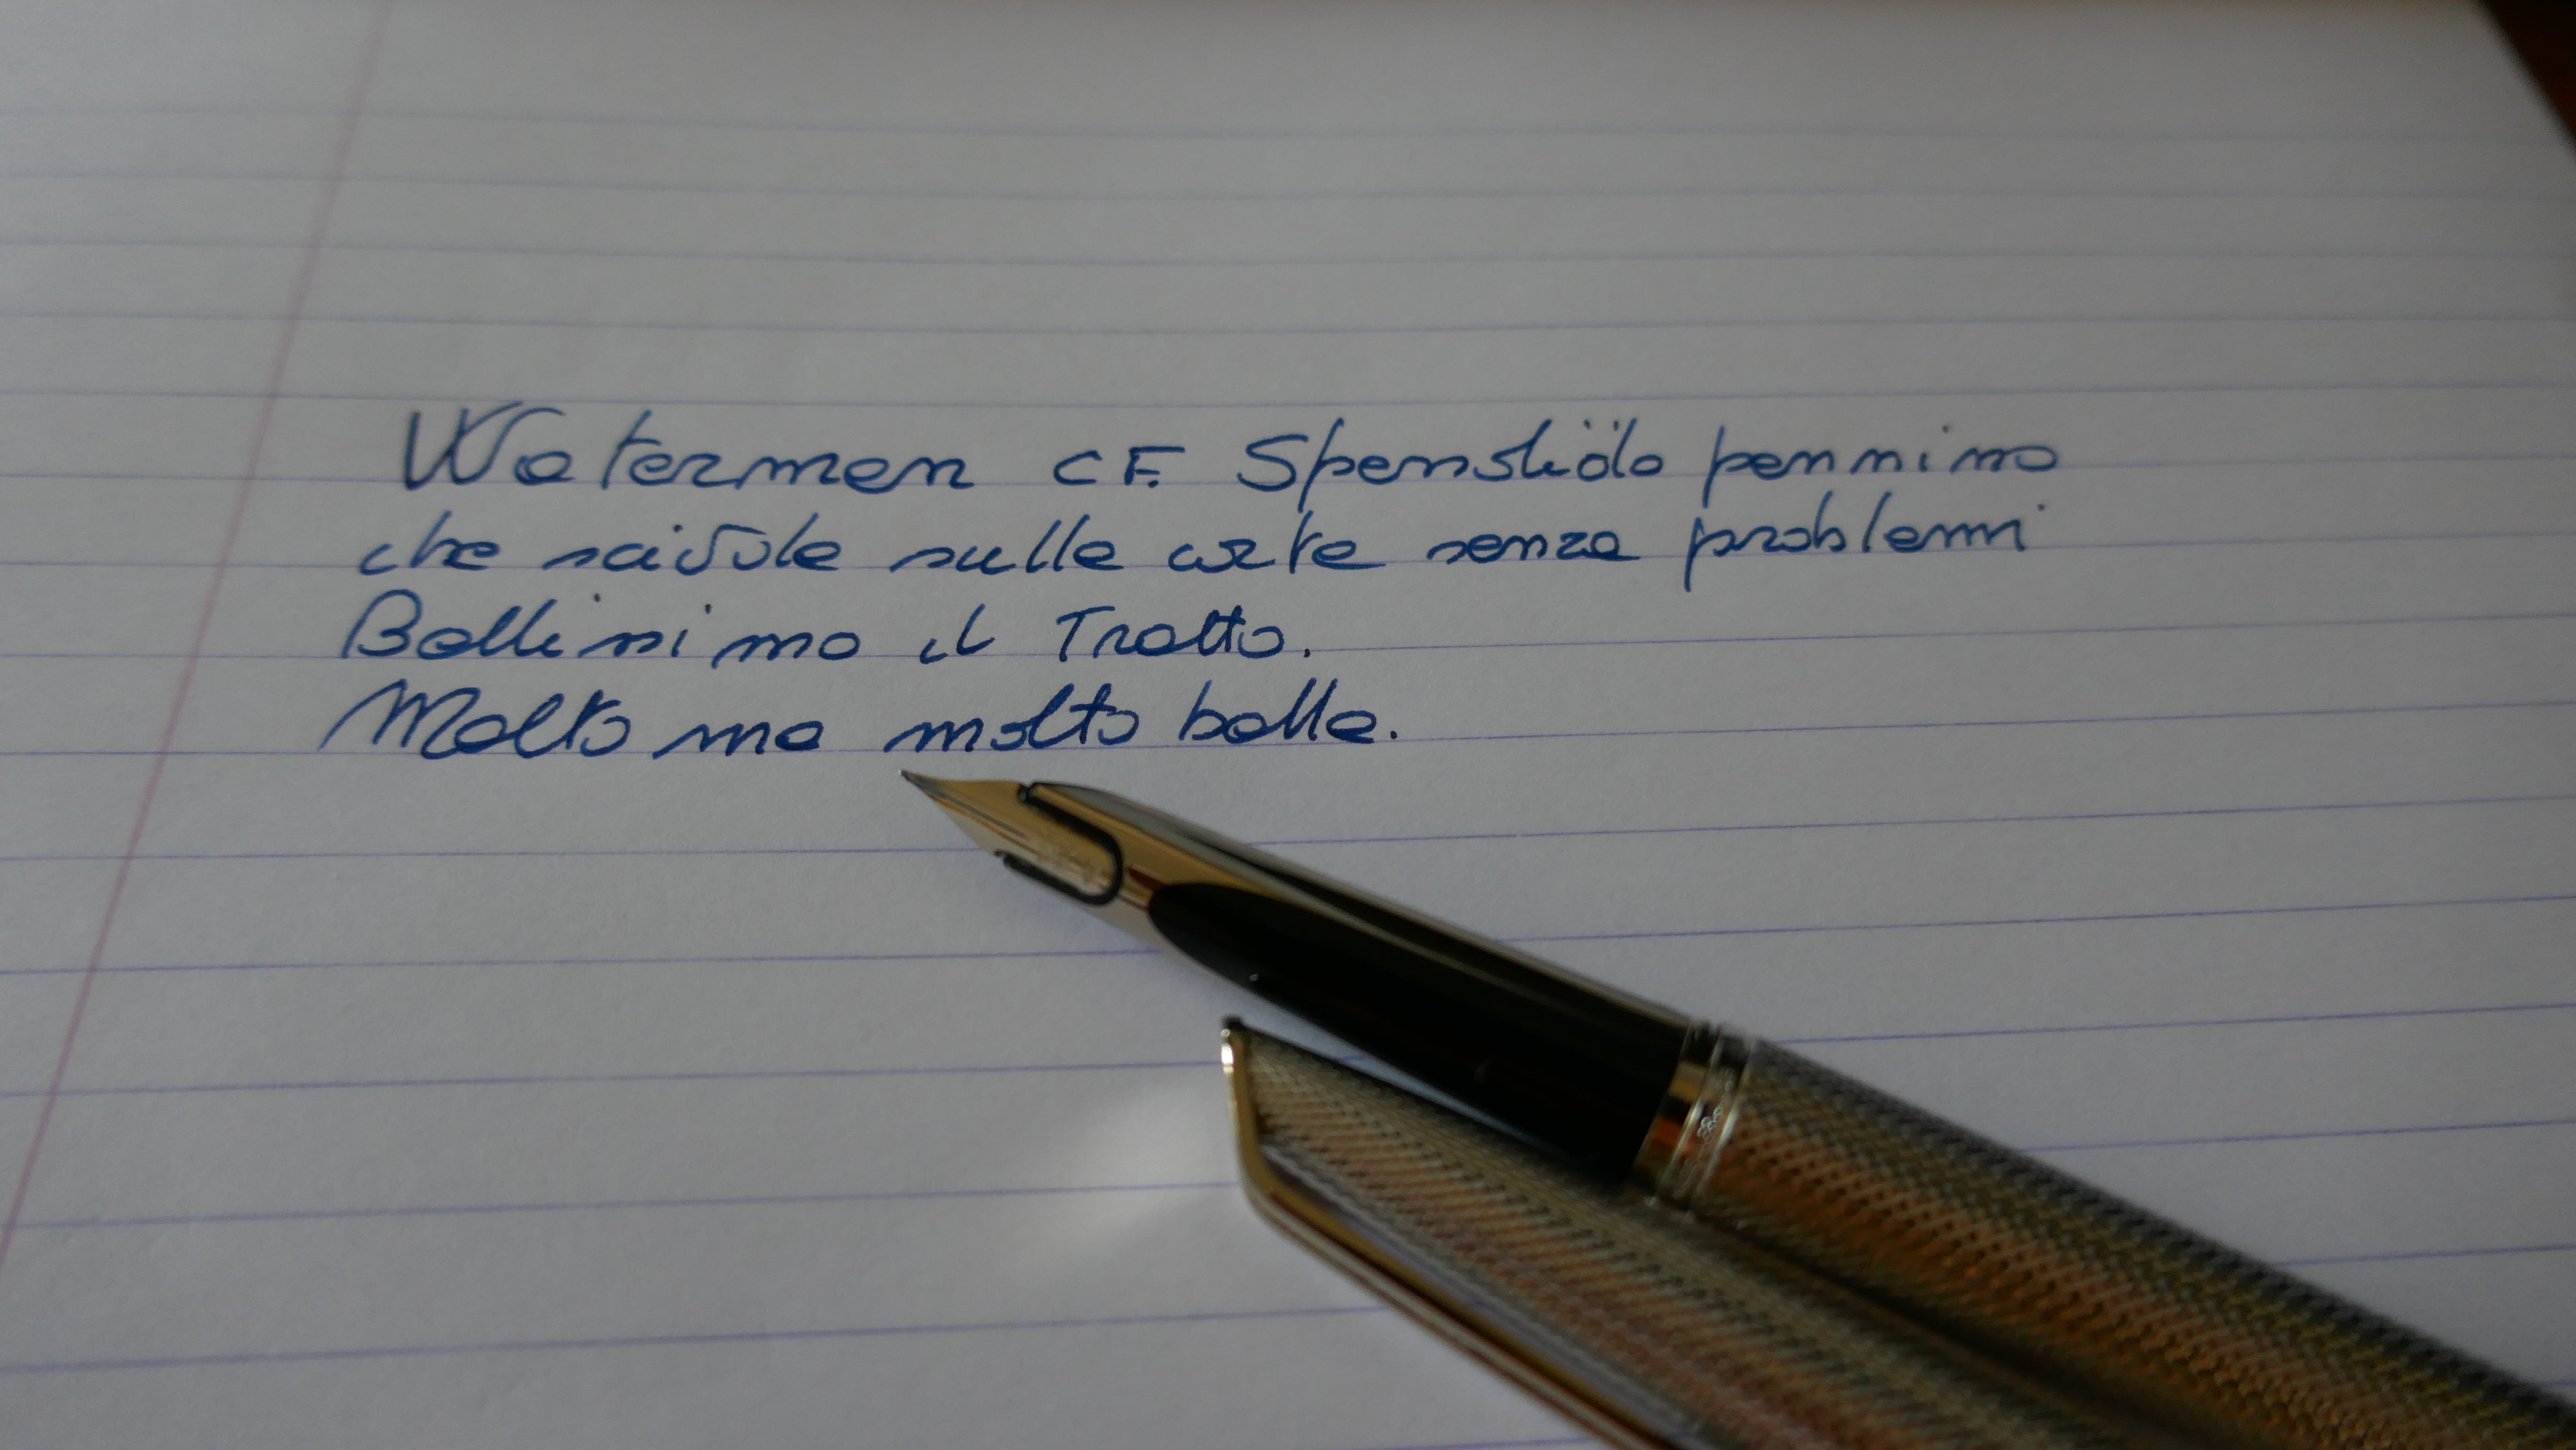 Waterman CF. Spenslido pennino
che scivola sulla carta senza problemi
Bellissimo il Tratto.
Molto ma molto bella.